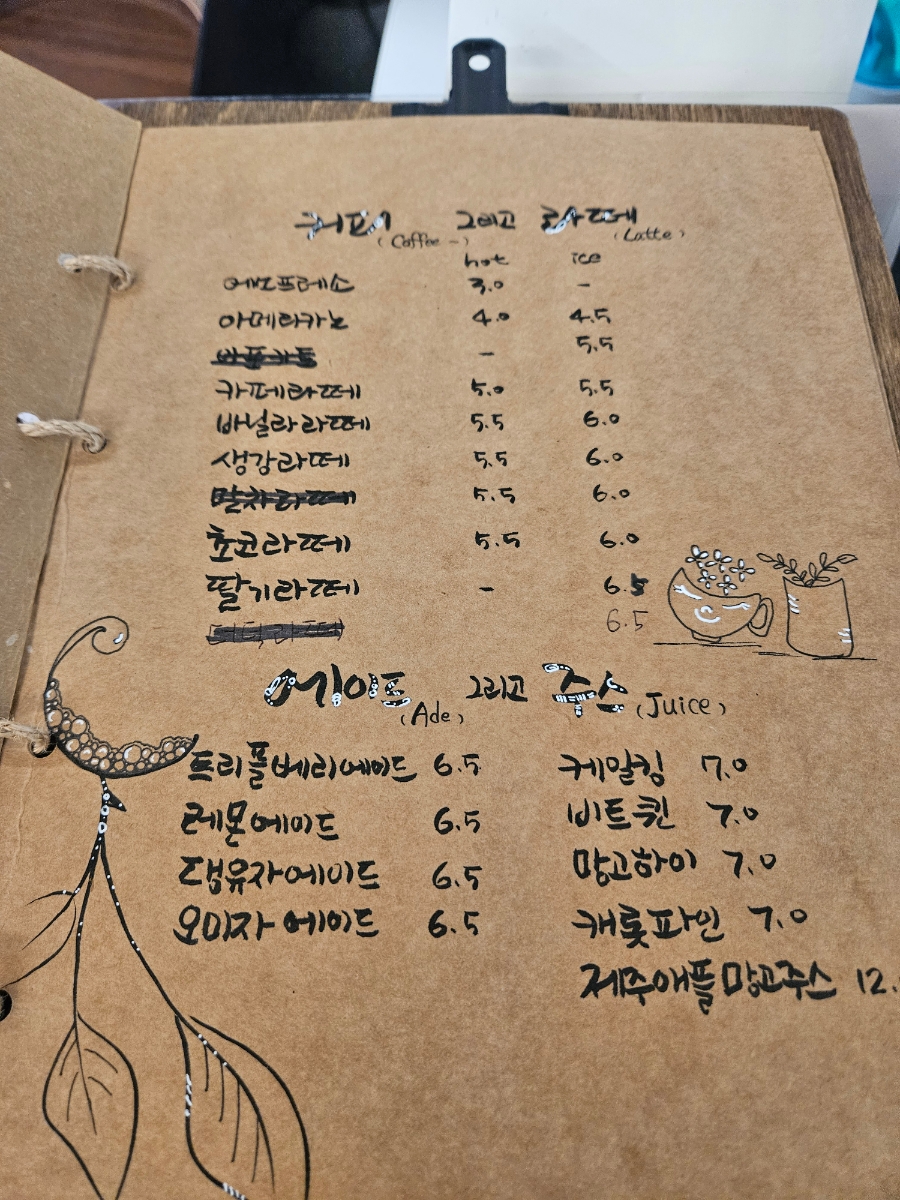 커피 그리고 라떼
(Coffee -) (Latte)
hot ice
에스프레소 3.0 -
아메리카노 4.0 4.5
- 5.5
카페라떼 5.0 5.5
바닐라라떼 5.5 6.0
생강라떼 5.5 6.0
말차라떼 5.5 6.0
초코라떼 5.5 6.0
딸기라떼 - 6.5
6.5
에이드 그리고 주스
(Ade) (Juice)
트리플베리에이드 6.5 케일킹 7.0
레몬에이드 6.5 비트퀸 7.0
댕유자에이드 6.5 망고하이 7.0
오미자에이드 6.5 캐롯파인 7.0
제주애플망고주스 12.